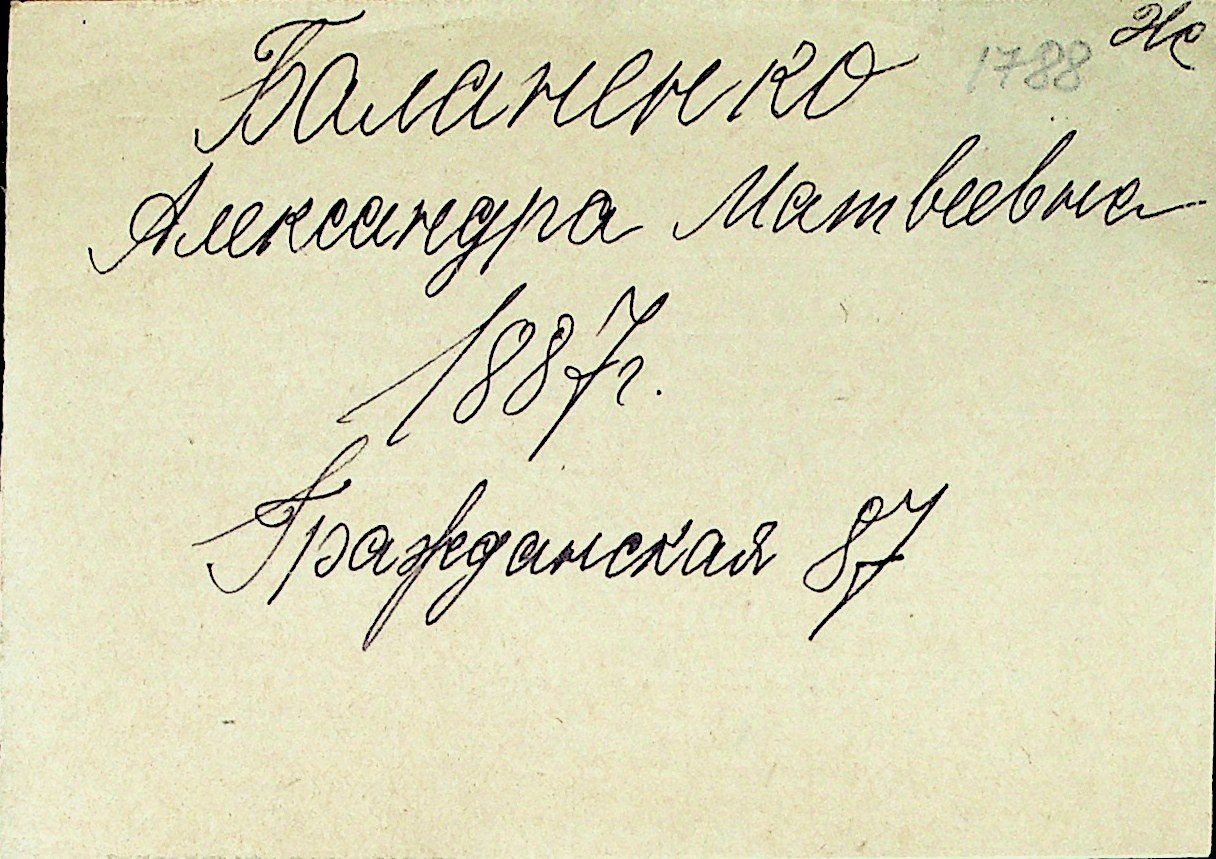 Баланенко 1788
Александра Матвеевна
1887г.
Гражданская 87